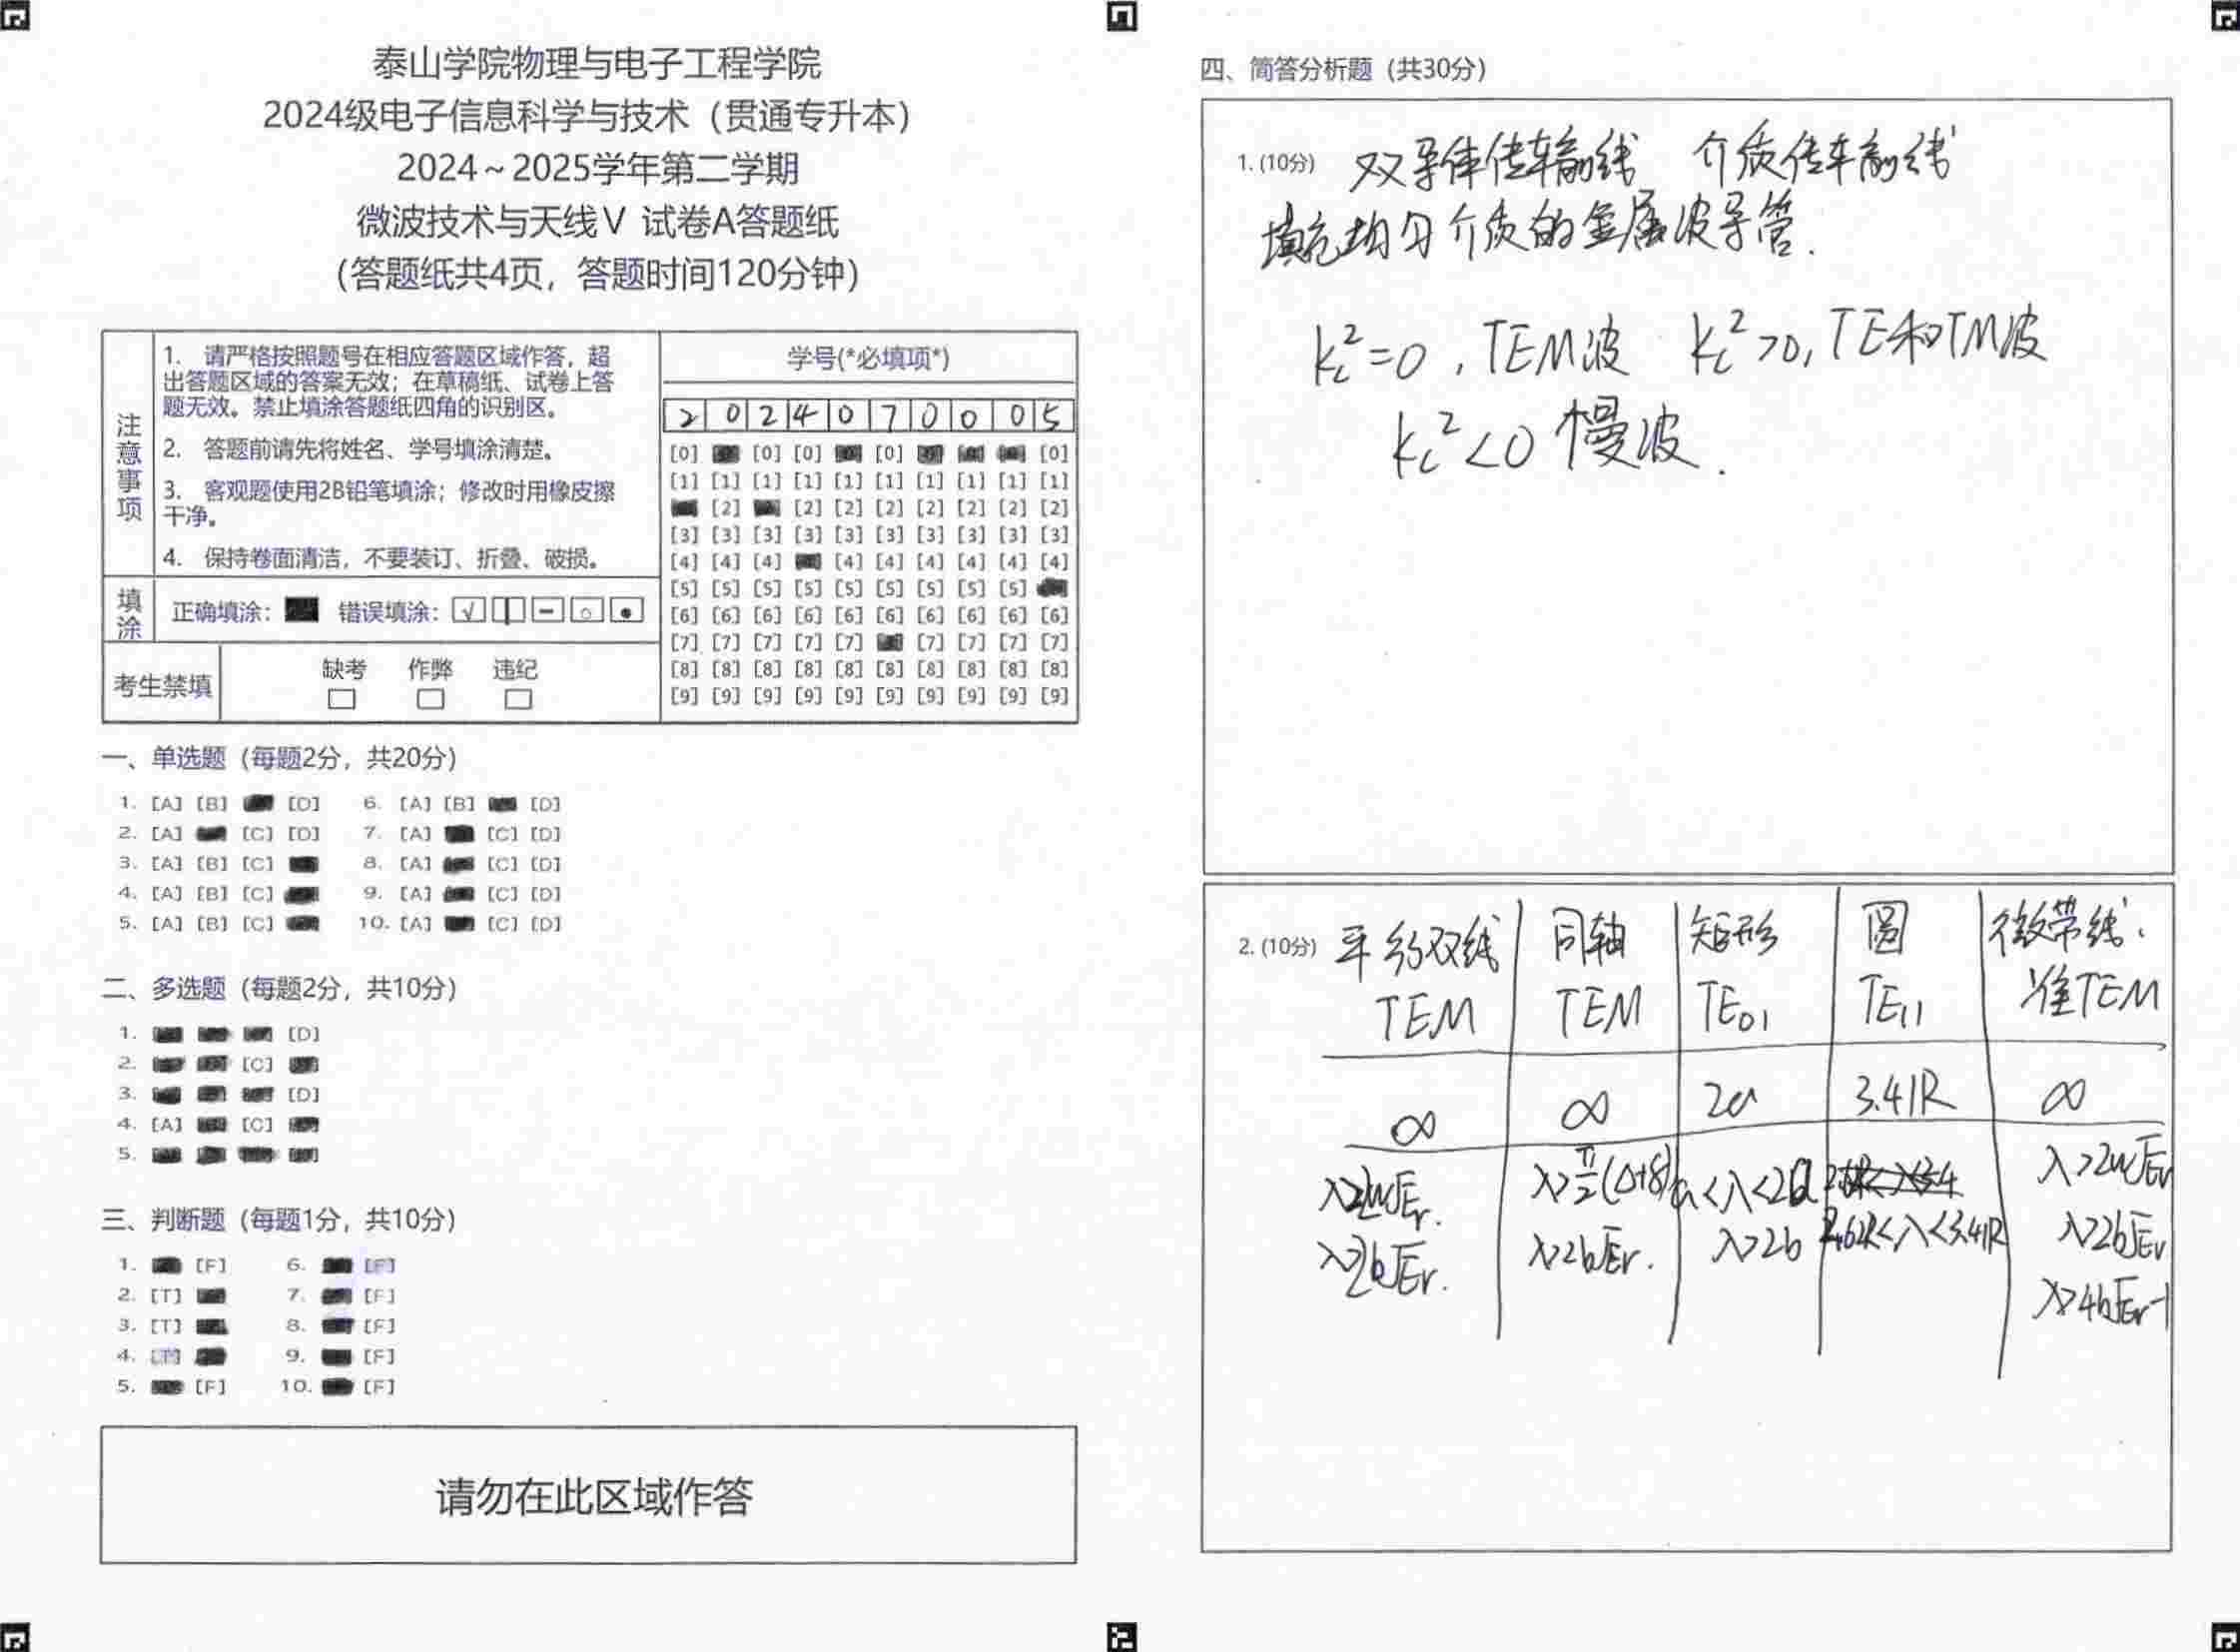 泰山学院物理与电子工程学院
2024级电子信息科学与技术（贯通专升本）
2024～2025学年第二学期
微波技术与天线Ⅴ 试卷A答题纸
（答题纸共4页，答题时间120分钟）
注意事项
1. 请严格按照题号在相应答题区域作答，超
出答题区域的答案无效；在草稿纸、试卷上答
题无效。禁止填涂答题纸四角的识别区。
2. 答题前请先将姓名、学号填涂清楚。
3. 客观题使用2B铅笔填涂；修改时用橡皮擦
干净。
4. 保持卷面清洁，不要装订、折叠、破损。
填涂
正确填涂： 错误填涂： √
考生禁填
缺考 作弊 违纪
学号(*必填项*)
2 0 2 4 0 7 0 0 0 5
[0] [0] [0] [0] [0]
[1] [1] [1] [1] [1] [1] [1] [1] [1] [1]
[2] [2] [2] [2] [2] [2] [2] [2]
[3] [3] [3] [3] [3] [3] [3] [3] [3] [3]
[4] [4] [4] [4] [4] [4] [4] [4] [4]
[5] [5] [5] [5] [5] [5] [5] [5] [5]
[6] [6] [6] [6] [6] [6] [6] [6] [6] [6]
[7] [7] [7] [7] [7] [7] [7] [7] [7]
[8] [8] [8] [8] [8] [8] [8] [8] [8] [8]
[9] [9] [9] [9] [9] [9] [9] [9] [9] [9]
一、单选题（每题2分，共20分）
1. [A] [B] [D] 6. [A] [B] [D]
2. [A] [C] [D] 7. [A] [C] [D]
3. [A] [B] [C] 8. [A] [C] [D]
4. [A] [B] [C] 9. [A] [C] [D]
5. [A] [B] [C] 10. [A] [C] [D]
二、多选题（每题2分，共10分）
1. [D]
2. [C]
3. [D]
4. [A] [C]
5.
三、判断题（每题1分，共10分）
1. [F] 6. [F]
2. [T] 7. [F]
3. [T] 8. [F]
4. [T] 9. [F]
5. [F] 10. [F]
请勿在此区域作答
四、简答分析题（共30分）
1. (10分) 双导体传输线 介质传输线
填充均匀介质的金属波导管.
Kc²=0, TEM波 Kc²>0, TE和TM波
Kc²<0 慢波.
2. (10分) 平行双线 同轴 矩形 圆 微带线.
TEM TEM TE01 TE11 准TEM
∞ ∞ 2a 3.41R ∞
λ>2w√εr. λ>π/2(D+8) a<λ<2a λ>2w√εr
λ>2b√εr. λ>2b√εr. λ>2b 2.62R<λ<3.41R λ>2b√εr
λ>4b√εr-1